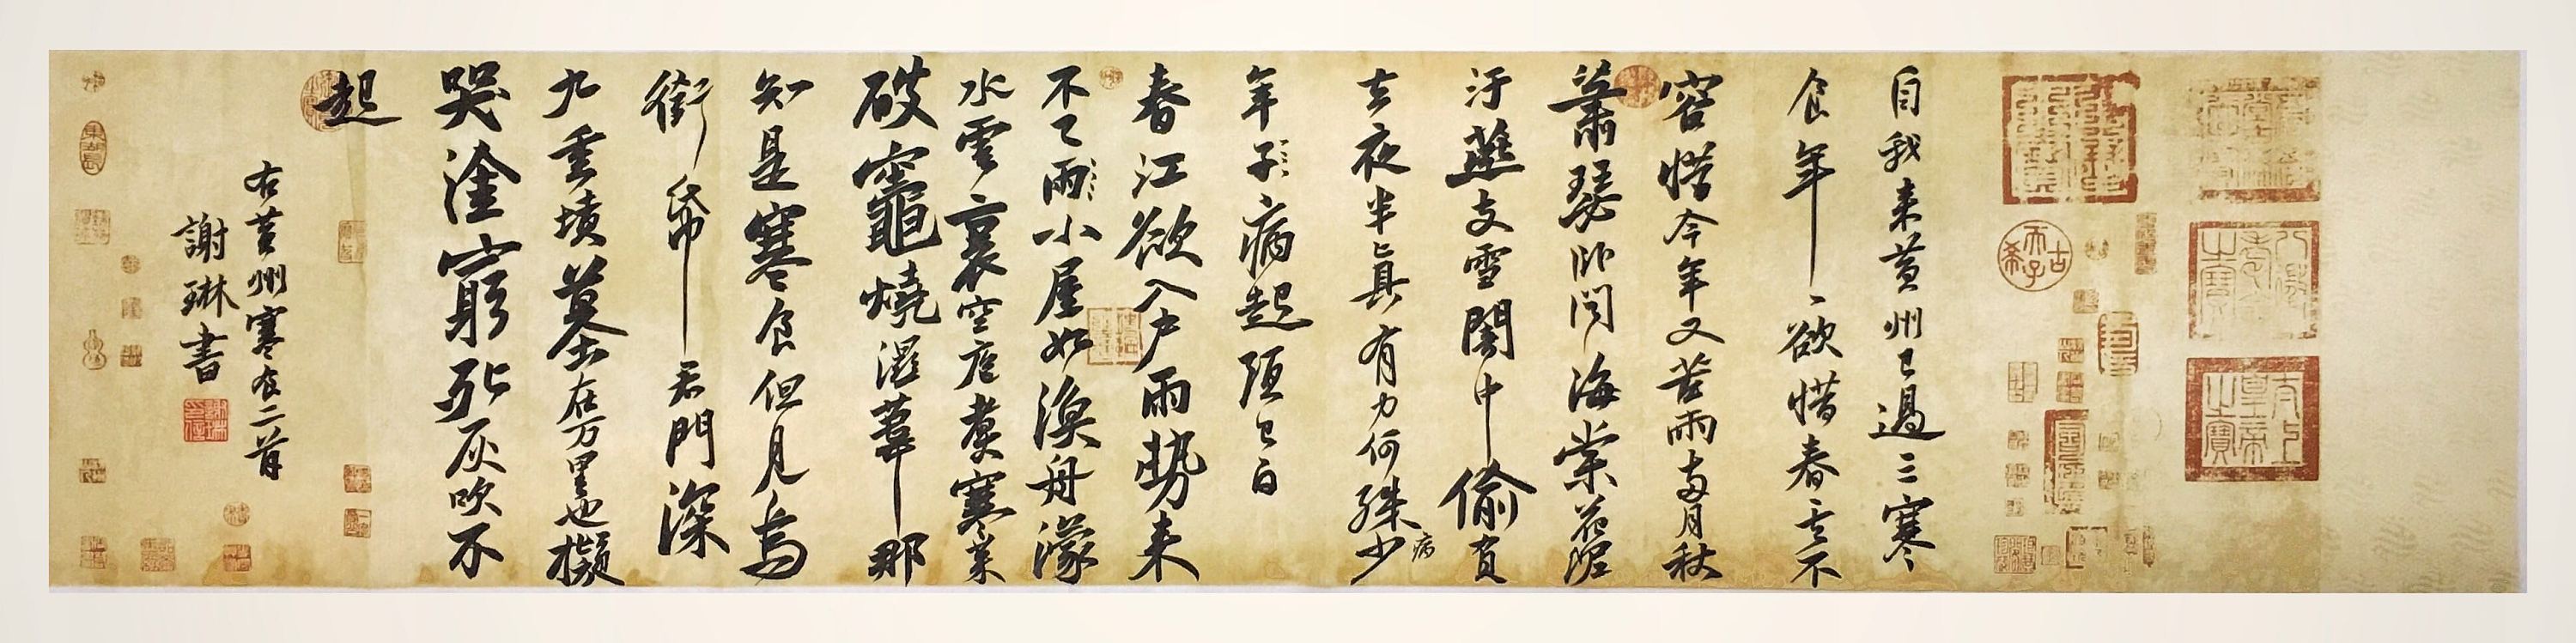 八徵耄念之寶
太上皇帝之寶
古希天子
自我來黃州已過三寒
食年、欲惜春、去不
容惜今年又苦雨兩月秋
蕭瑟臥聞海棠花泥
汙燕支雪闇中偷負
去夜半真有力何殊少
病
年子病起頭已白
春江欲入戶雨勢來
不已雨小屋如漁舟濛
水雲裏空庖煑寒菜
破竈燒濕葦那
知是寒食但見烏
銜帋君門深
九重墳墓在万里也擬
哭塗窮死灰吹不
起
右黃州寒食二首
謝琳書